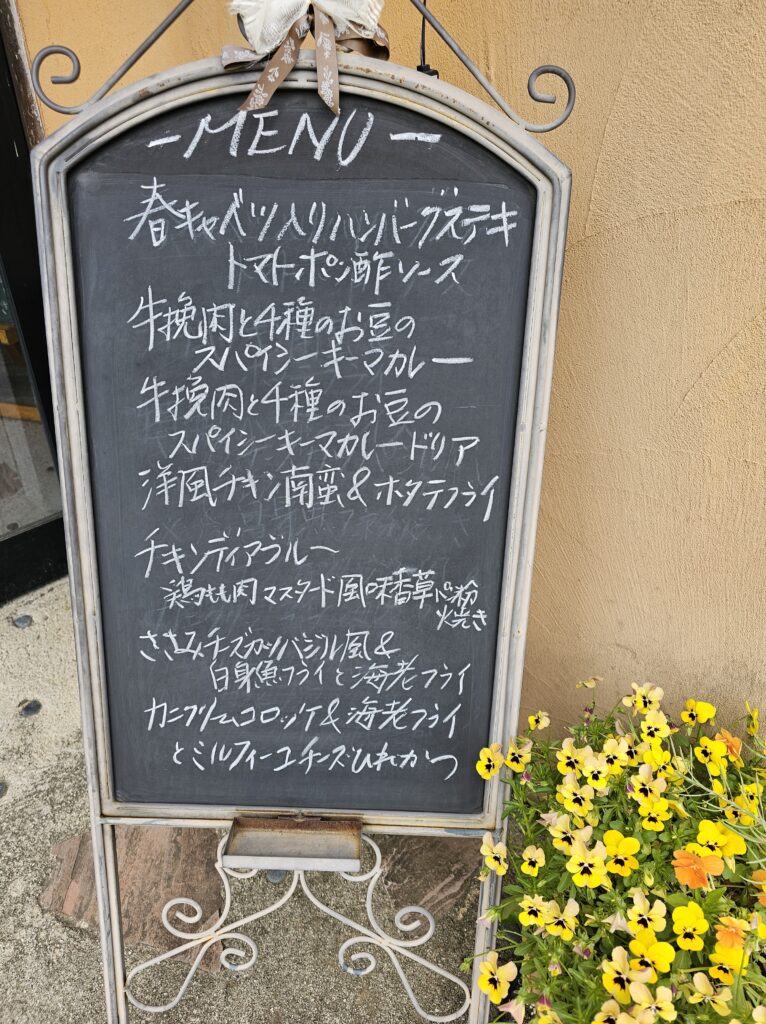 -MENU-
春キャベツ入りハンバーグステキ
トマトポン酢ソース
牛挽肉と4種のお豆の
スパイシーキーマカレー
牛挽肉と4種のお豆の
スパイシーキーマカレードリア
洋風チキン南蛮&ホタテフライ
チキンディアブルー
鶏もも肉マスタード風味香草パン粉
焼き
ささみチーズカツバジル風&
白身魚フライと海老フライ
カニクリームコロッケ&海老フライ
とミルフィーユチーズひれかつ